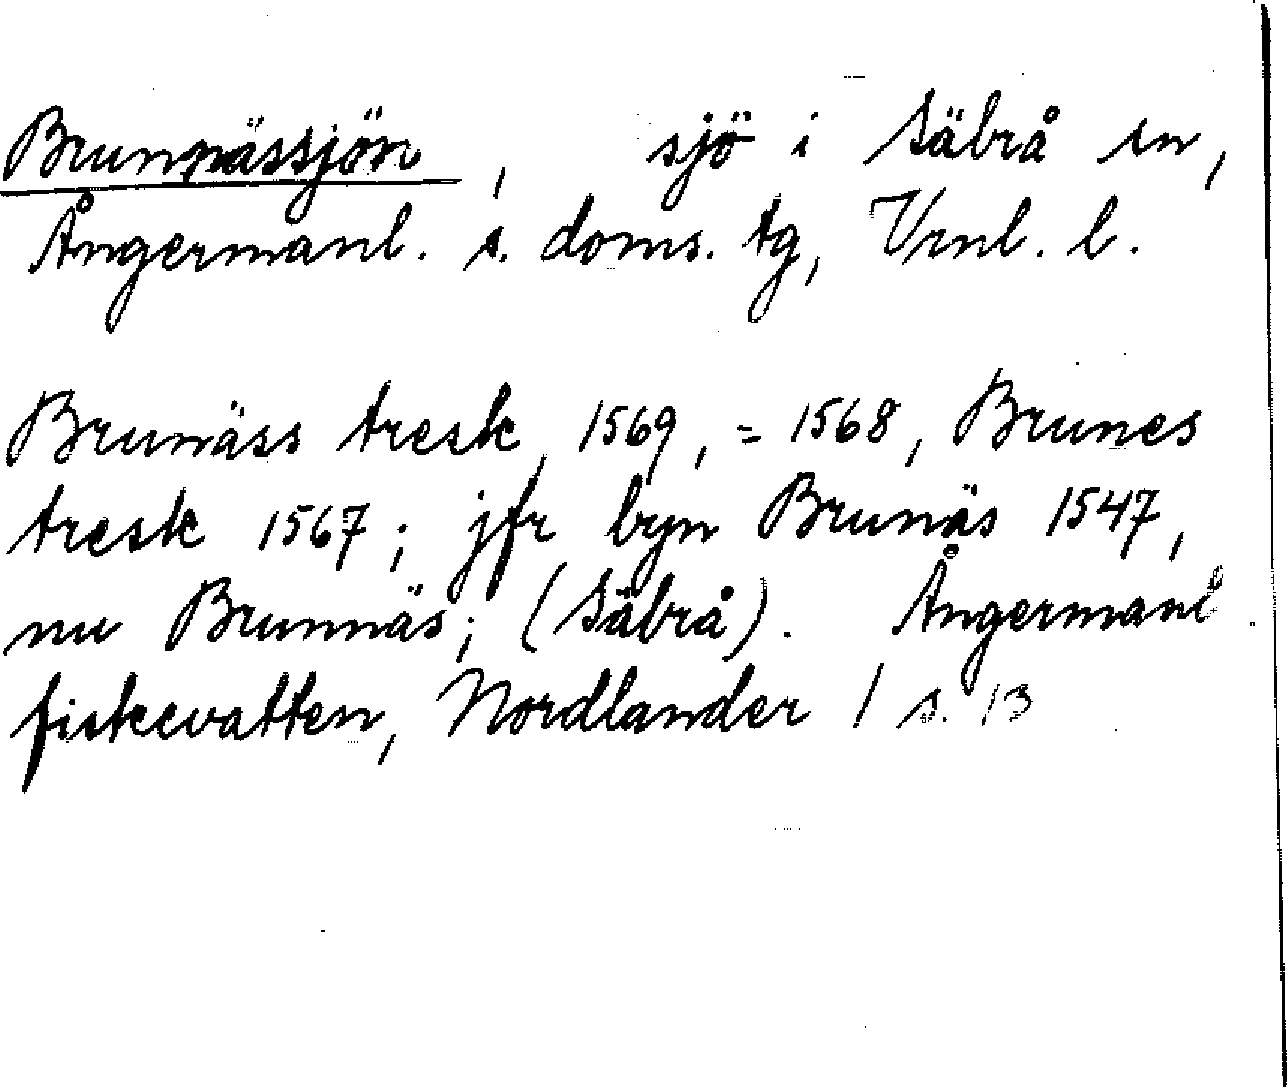 Brunnässjön, sjö i Säbrå sn,
Ångermanl. s. doms. tg, Vrnl. l.
Brunäss tresk, 1569, = 1568, Brunes
tresk 1567; jfr byn Brunäs 1547,
nu Brunnäs; (Säbrå). Ångermanl.
fiskevatten, Nordlander 1 s. 13